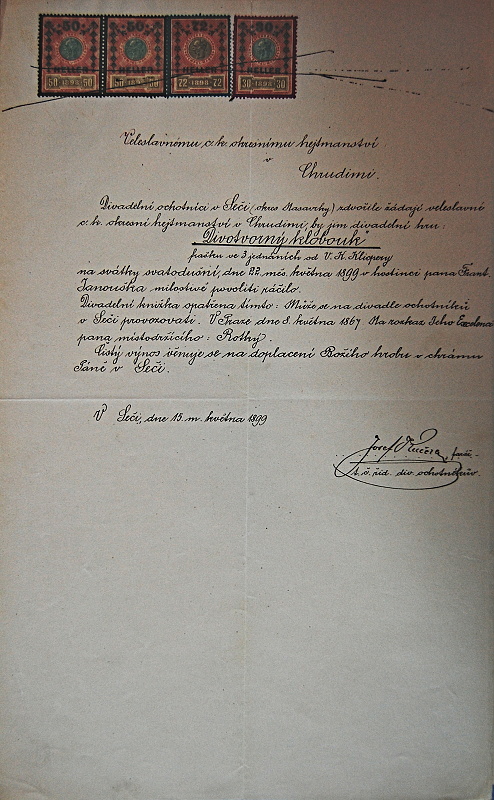 50 50 72 30
HELLER HELLER HELLER HELLER
50 1898 50 50 50 72 1898 72 30 1898 30
Veleslavnému c. k. okresnímu hejtmanství
v
Chrudimi.
Divadelní ochotníci v Seči (okres Nasavrky) zdvořile žádají veleslavné
c. k. okresní hejtmanství v Chrudimi, by jim divadelní hru:
"Divotvorný klobouk"
frašku ve 3 jednáních od V. K. Klicpery
na svátky svatodušní, dne 22. měs. května 1899 v hostinci pana Frant.
Janouška milostivě povoliti ráčilo.
Divadelní knížka opatřena tímto: Může se na divadle ochotníků
v Seči provozovati. V Praze dne 8. května 1867. Na rozkaz Jeho Excelenci
pana místodržícího: Rothy.
Čistý výnos věnuje se na doplacení Božího hrobu v chrámu
Páně v Seči.
V Seči, dne 15. m. května 1899
Josef
t. č. řid. div. ochotníkův.